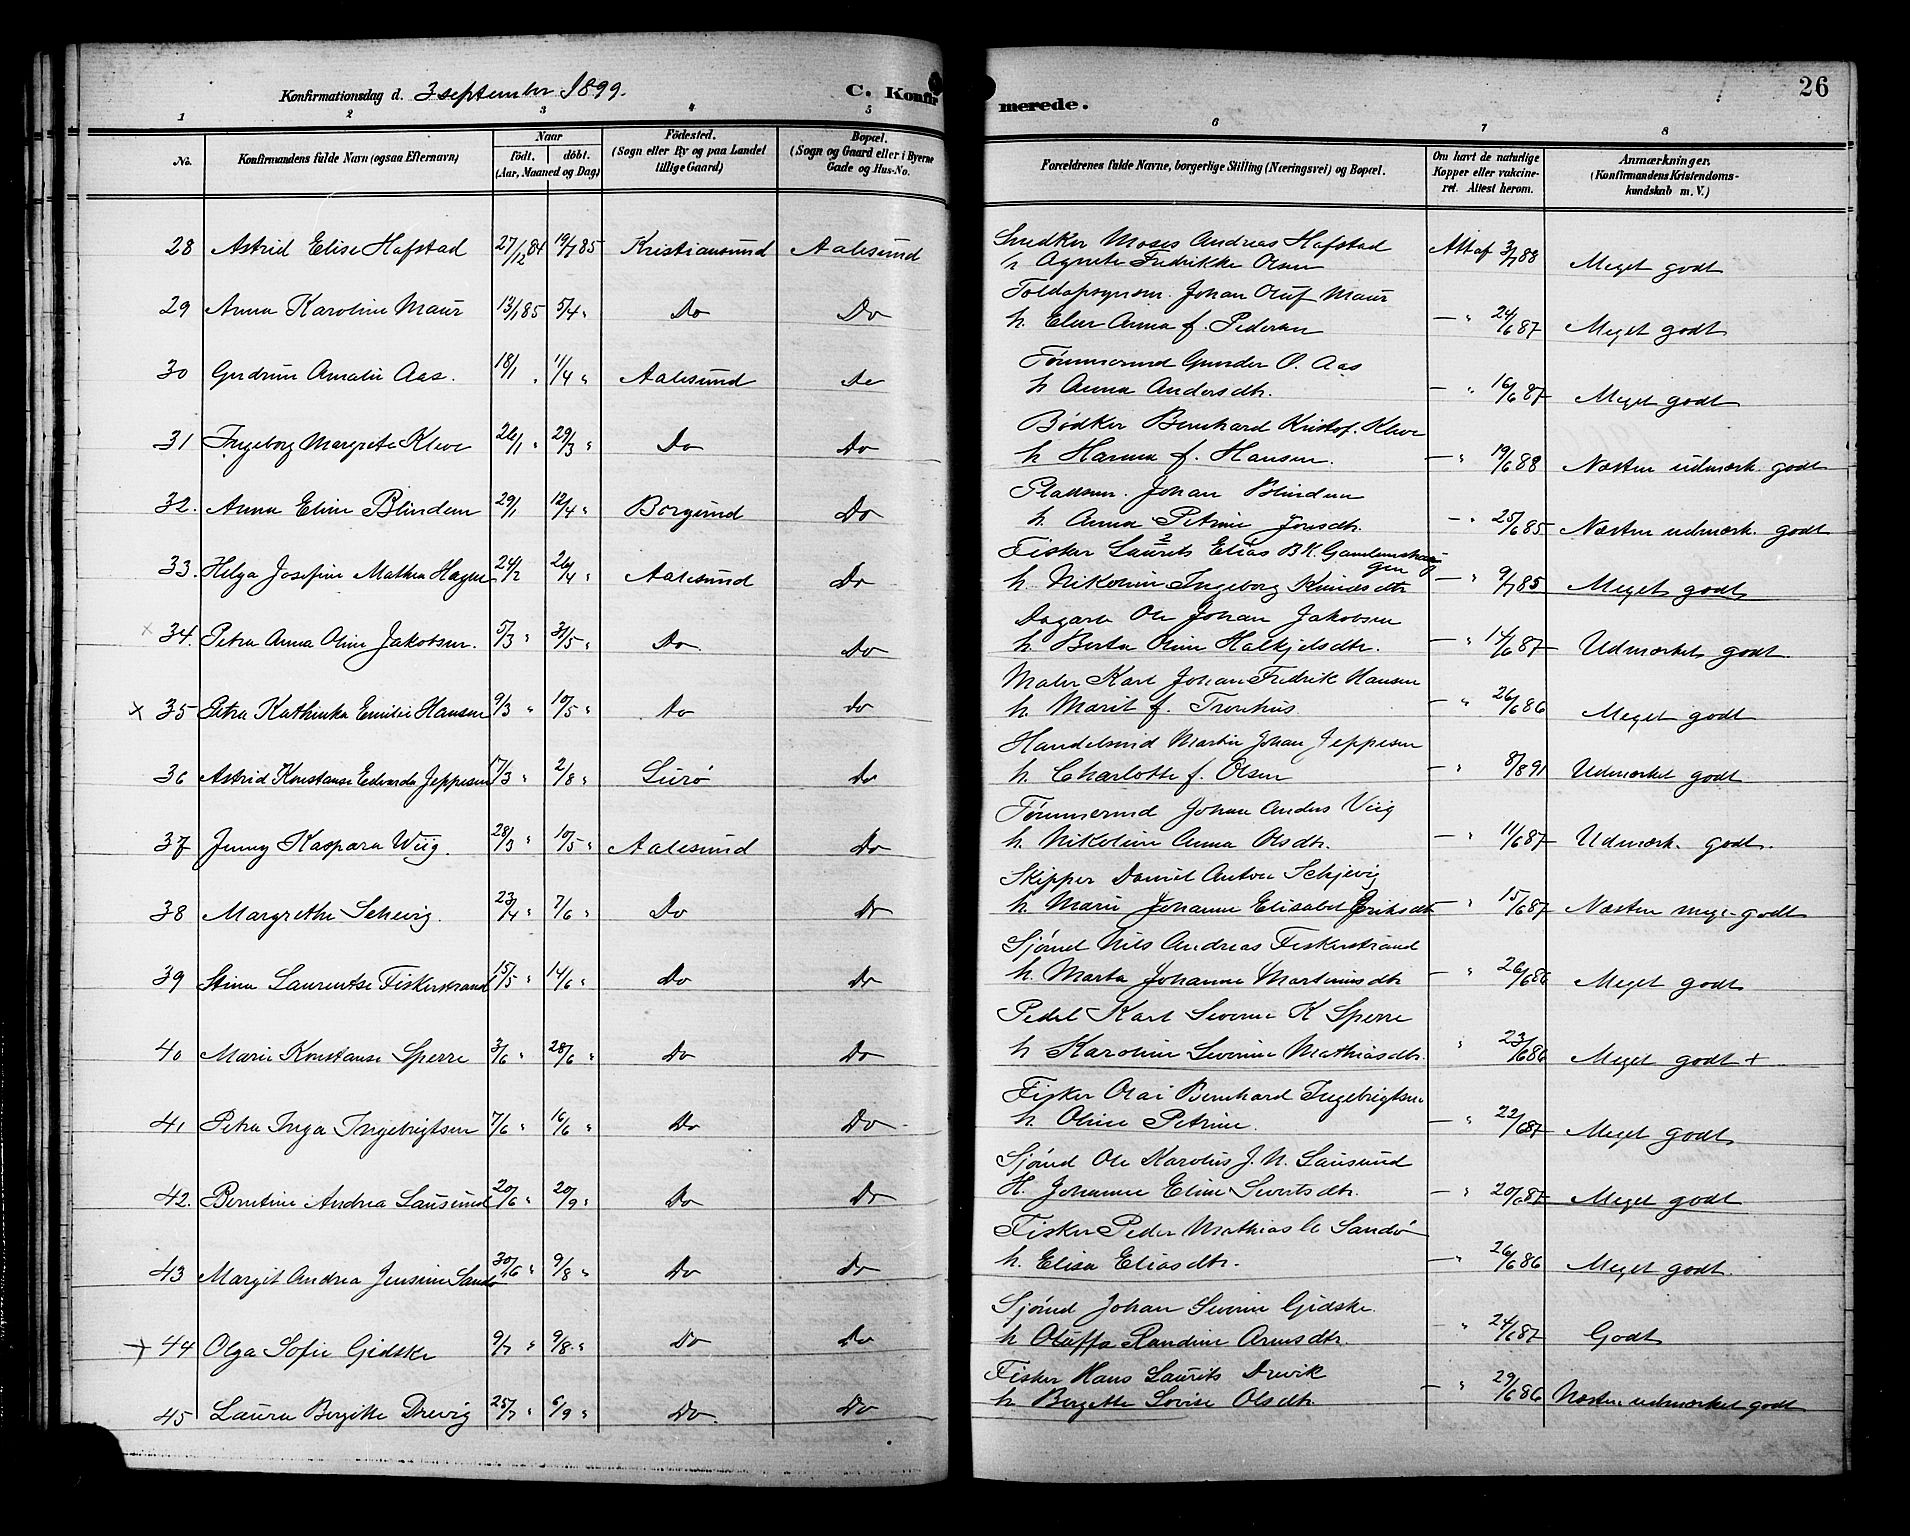 Konfirmationsdag d. 3 september 1899.
C. Konfirmerede.
26
1 2 3 4 5 6 7 8
No.
Konfirmandens fulde Navn (ogsaa Efternavn)
Naar
födt. döbt.
(Aar, Maaned og Dag)
Födested.
(Sogn eller By og paa Landet
tillige Gaard)
Bopæl.
(Sogn og Gaard eller i Byerne
Gade og Hus-No.
Forældrenes fulde Navne, borgerlige Stilling (Næringsvei) og Bopæl.
Om havt de naturlige
Kopper eller vakcine-
ret. Attest herom.
Anmærkninger.
(Konfirmandens Kristendoms-
kundskab m. V.)
28 Astrid Elise Hafstad 27/12 84 19/7 85 Kristiansund Aalesund
Snedker Moses Andreas Hafstad
h Agnete Fredrikke Olsen Att af 3/7 88 Meget godt
29 Anna Karoline Maur 13/1 85 5/4 " Do Do
Johan Oluf Maur
h. Anna f. Pedersen — " 24/6 87 Meget godt
30 Gudrun Amalie Aas. 18/1 " 11/4 " Aalesund Do
Tømmermd Gunder O. Aas
h Anna Andersdtr. — " 16/6 87 Meget godt
31 Ingeborg Margrete Kleve 26/1 " 29/3 " Do Do
Bødker Bernhard Kristof. Kleve
h Hanna f. Hansen. — " 19/6 88 Næsten udmærk. godt
32. Anna Eline Blindem 29/1 12/4 " Borgund Do
Pladsm. Johan Blindem
h. Anna Petrine Jonsdtr. — " 25/6 85 Næsten udmærk. godt
33. Helga Josefine Mathea Hagen 24/2 26/4 " Aalesund Do
Fisker Laurits Elias B.K. Gamlemshaugen
h. Nikoline Ingeborg Knudsdtr — " 9/7 85 Meget godt
34. Petra Anna Oline Jakobsen. 5/3 " 31/5 " Do Do
Dagarb Ole Johan Jakobsen
h. Berta Oline Halkjelsdtr. — " 14/6 87 Udmærket godt.
x 35 Petra Kathinka Emilie Hansen 9/3 " 10/5 " Do Do
Maler Karl Johan Fredrik Hansen
h. Marit f. Tronhus. — " 26/6 86 Meget godt
36 Astrid Konstanse Edvarda Jeppesen 17/3 " 2/8 " Lurø Do
Handelsmd Martin Johan Jeppesen
h. Charlotte f. Olsen — " 8/8 91 Udmærket godt
37 Jenny Kaspara Wiig. 28/3 " 10/5 " Aalesund Do
Tømmermd Johan Anders Viig
h. Nikoline Anna Olsdtr. — " 11/6 87 Udmærk. godt.
38 Margrethe Schevig. 23/4 " 7/6 " Do Do
Skipper Daniel Anton Schjevig
h. Marie Johanne Elisabet Eriksdtr " 15/6 87 Næsten meget godt
39 Stina Laurentse Fiskerstrand 15/5 " 14/6 " Do Do
Sjømd Nils Andreas Fiskerstrand
h. Marta Johanne Martinusdtr — " 26/6 86 Meget godt
40 Marie Konstanse Sperre 3/6 " 28/6 " Do Do
Pedel Karl Severin K Sperre
h Karoline Severine Mathiasdtr. " 23/6 86 Meget godt +
41 Petra Inga Ingebrigtsen 7/6 " 16/6 " Do Do
Fisker Olai Bernhard Ingebrigtsen
h Oline Petrine. — " 22/6 87 Meget godt
42. Berntine Andrea Sausund 20/6 " 20/9 " Do Do
Sjømd Ole Karolus J. N. Sausund
H. Johanne Eline Sivertsdtr. — " 20/6 87 Meget godt
43 Margit Andrea Jensine Sandø 30/6 " 9/8 " Do Do
Fisker Peder Mathias Sandø
h. Elisa Eliasdtr. — " 26/6 86 Meget godt.
x 44 Olga Sofie Gidske 9/7 " 9/8 " Do Do
Sjømd Johan Severin Gidske.
h Oluffa Randine Arnesdtr. — " 24/6 87 Godt
45 Laura Bergitte Drevig 25/7 " 6/9 " Do. Do
Fisker Hans Laurits Drevik
h Bergitte Lovise Olsdtr. — " 29/6 86 Næsten udmærket godt